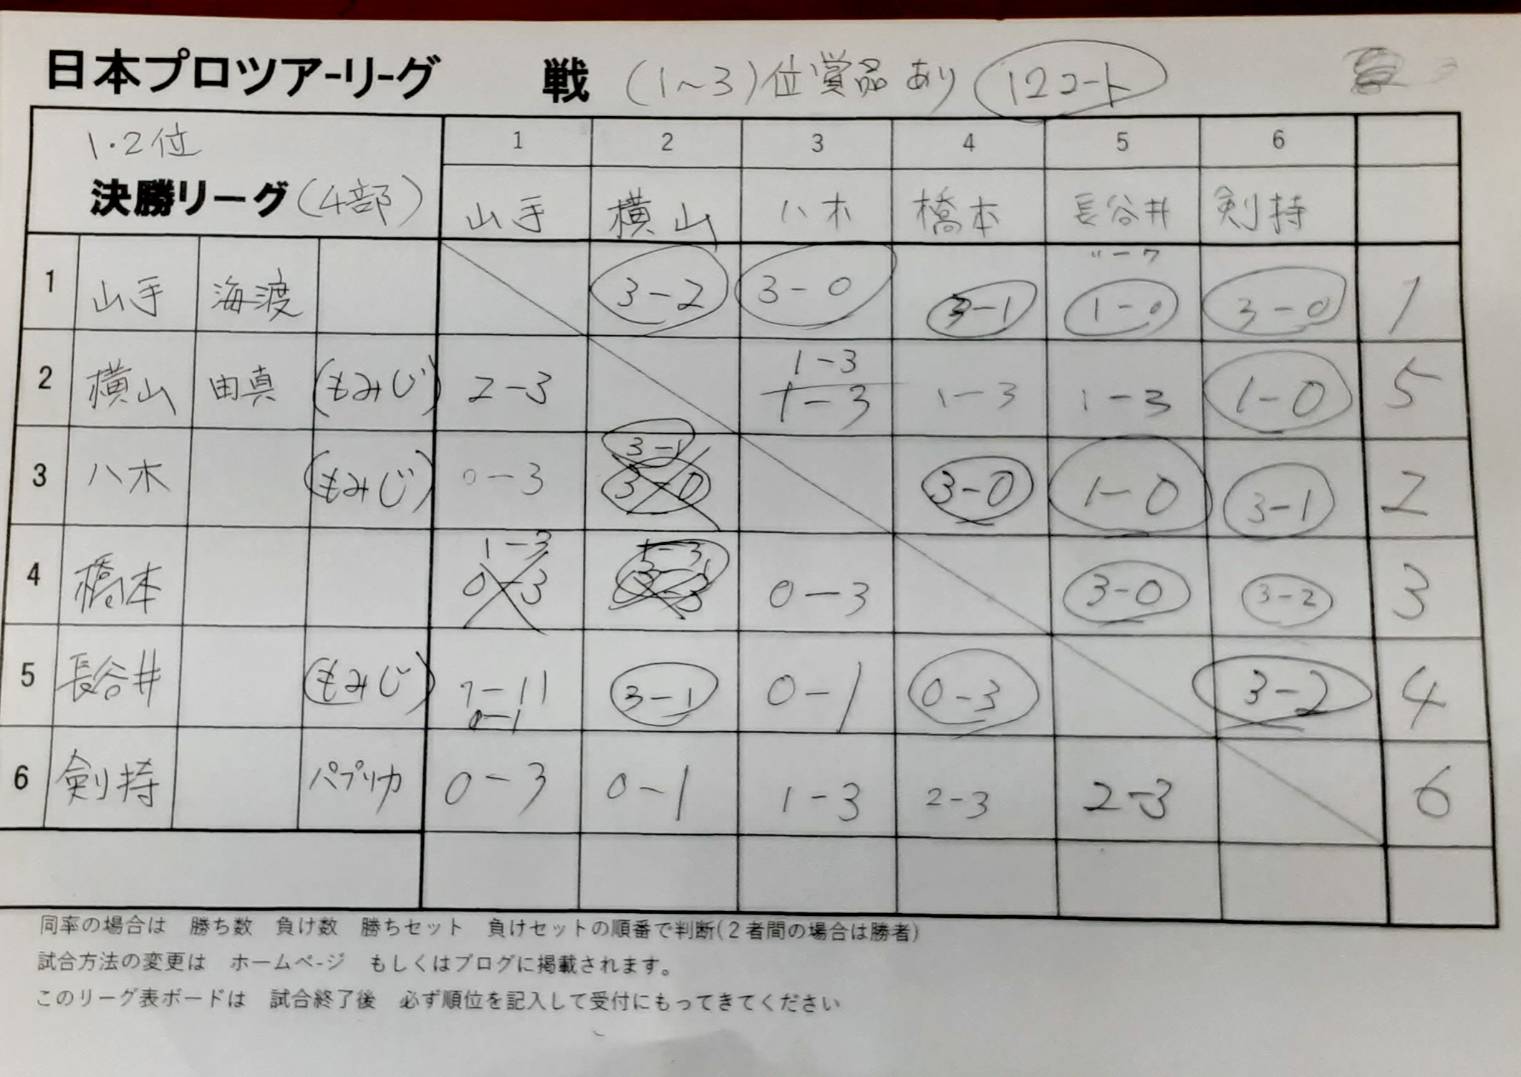 日本プロツアーリーグ 戦 (1～3)位賞品あり 12コート
1・2位 1 2 3 4 5 6
決勝リーグ(4部) 山手 横山 八木 橋本 長谷井 剣持
11-7
1 山手 海渡 3-2 3-0 3-1 1-0 3-0 1
1-3
2 横山 由真 (もみじ) 2-3 1-3 1-3 1-3 1-0 5
3-1
3 八木 (もみじ) 0-3 3-0 3-0 1-0 3-1 2
1-3
4 橋本 0-3 0-3 3-0 3-2 3
5 長谷井 (もみじ) 7-11 3-1 0-1 0-3 3-2 4
0-1
6 剣持 パプリカ 0-3 0-1 1-3 2-3 2-3 6
同率の場合は 勝ち数 負け数 勝ちセット 負けセットの順番で判断(2者間の場合は勝者)
試合方法の変更は ホームページ もしくはブログに掲載されます。
このリーグ表ボードは 試合終了後 必ず順位を記入して受付にもってきてください